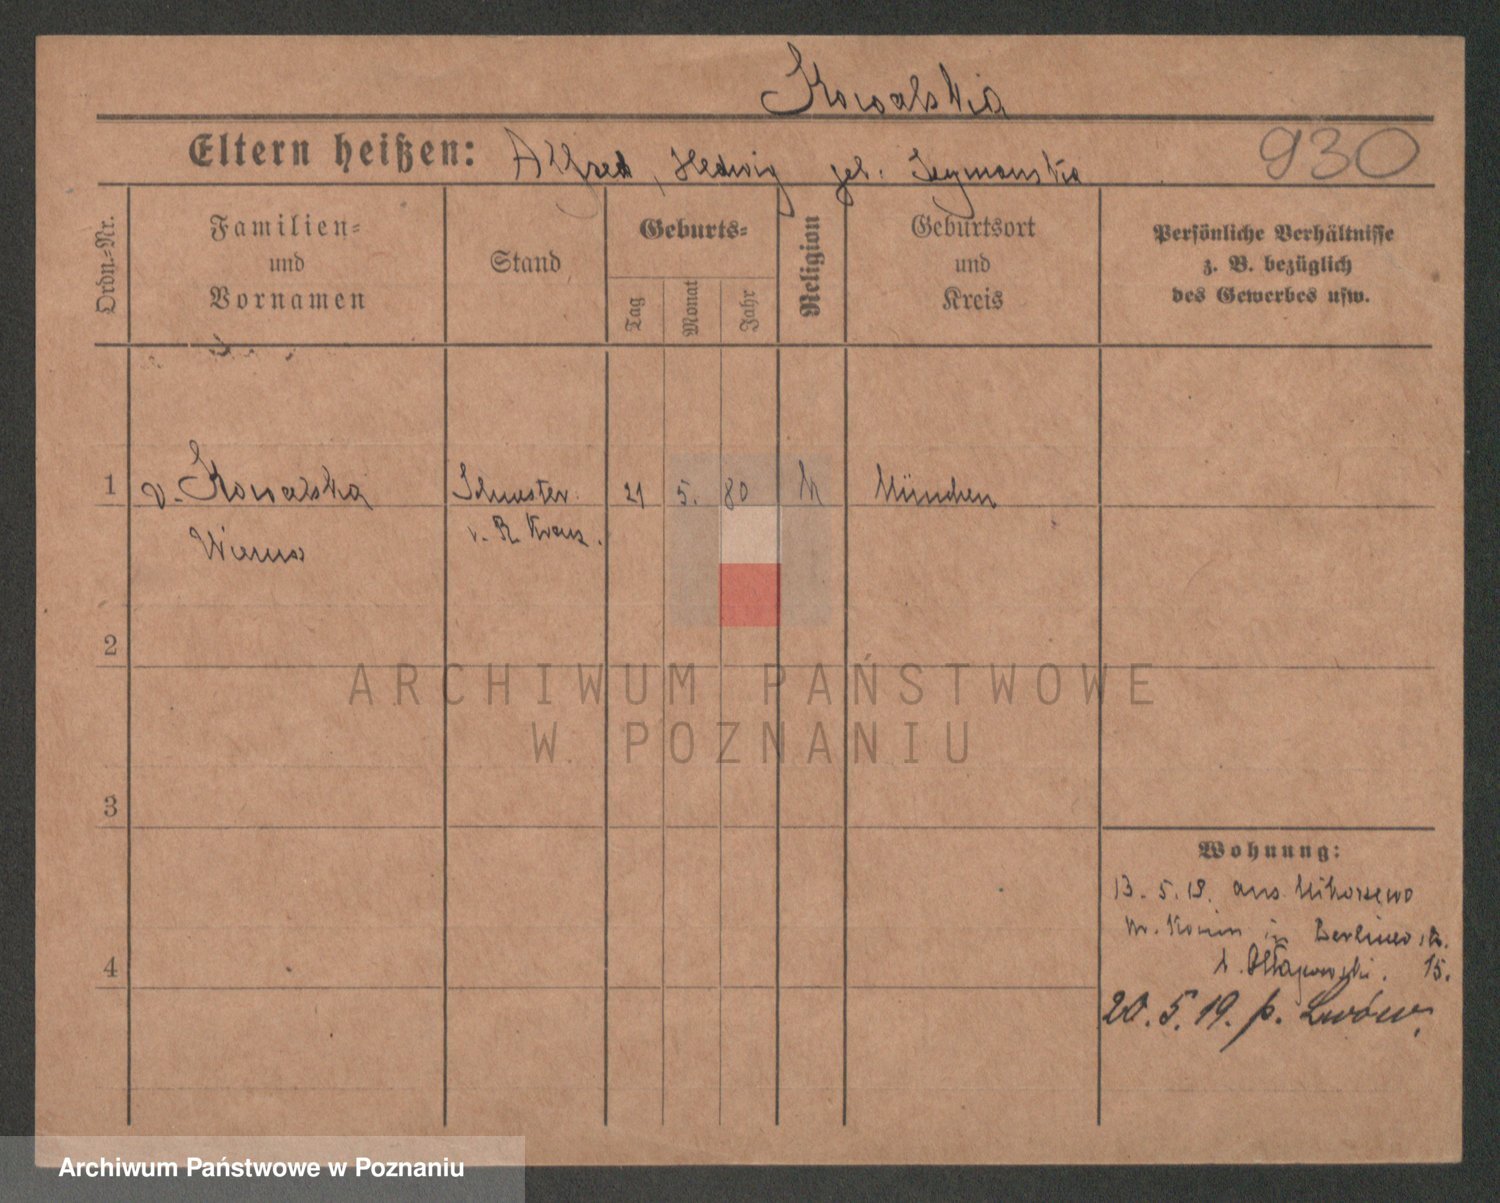 Kowalska
Eltern heißen: Alfred, Hedwig geb. Szymanska
930
Ordn.-Nr.
Familien- und Vornamen
Stand
Geburts-
Tag
Monat
Jahr
Religion
Geburtsort und Kreis
Persönliche Verhältnisse z. B. bezüglich des Gewerbes usw.
1 v. Kowalska Schwester 21 5. 80 k München
v. R. Kreuz.
2
ARCHIWUM PAŃSTWOWE
W POZNANIU
3
Wohnung:
13. 5. 19. aus
in
4
15.
20. 5. 19. p. Lwów
Archiwum Państwowe w Poznaniu